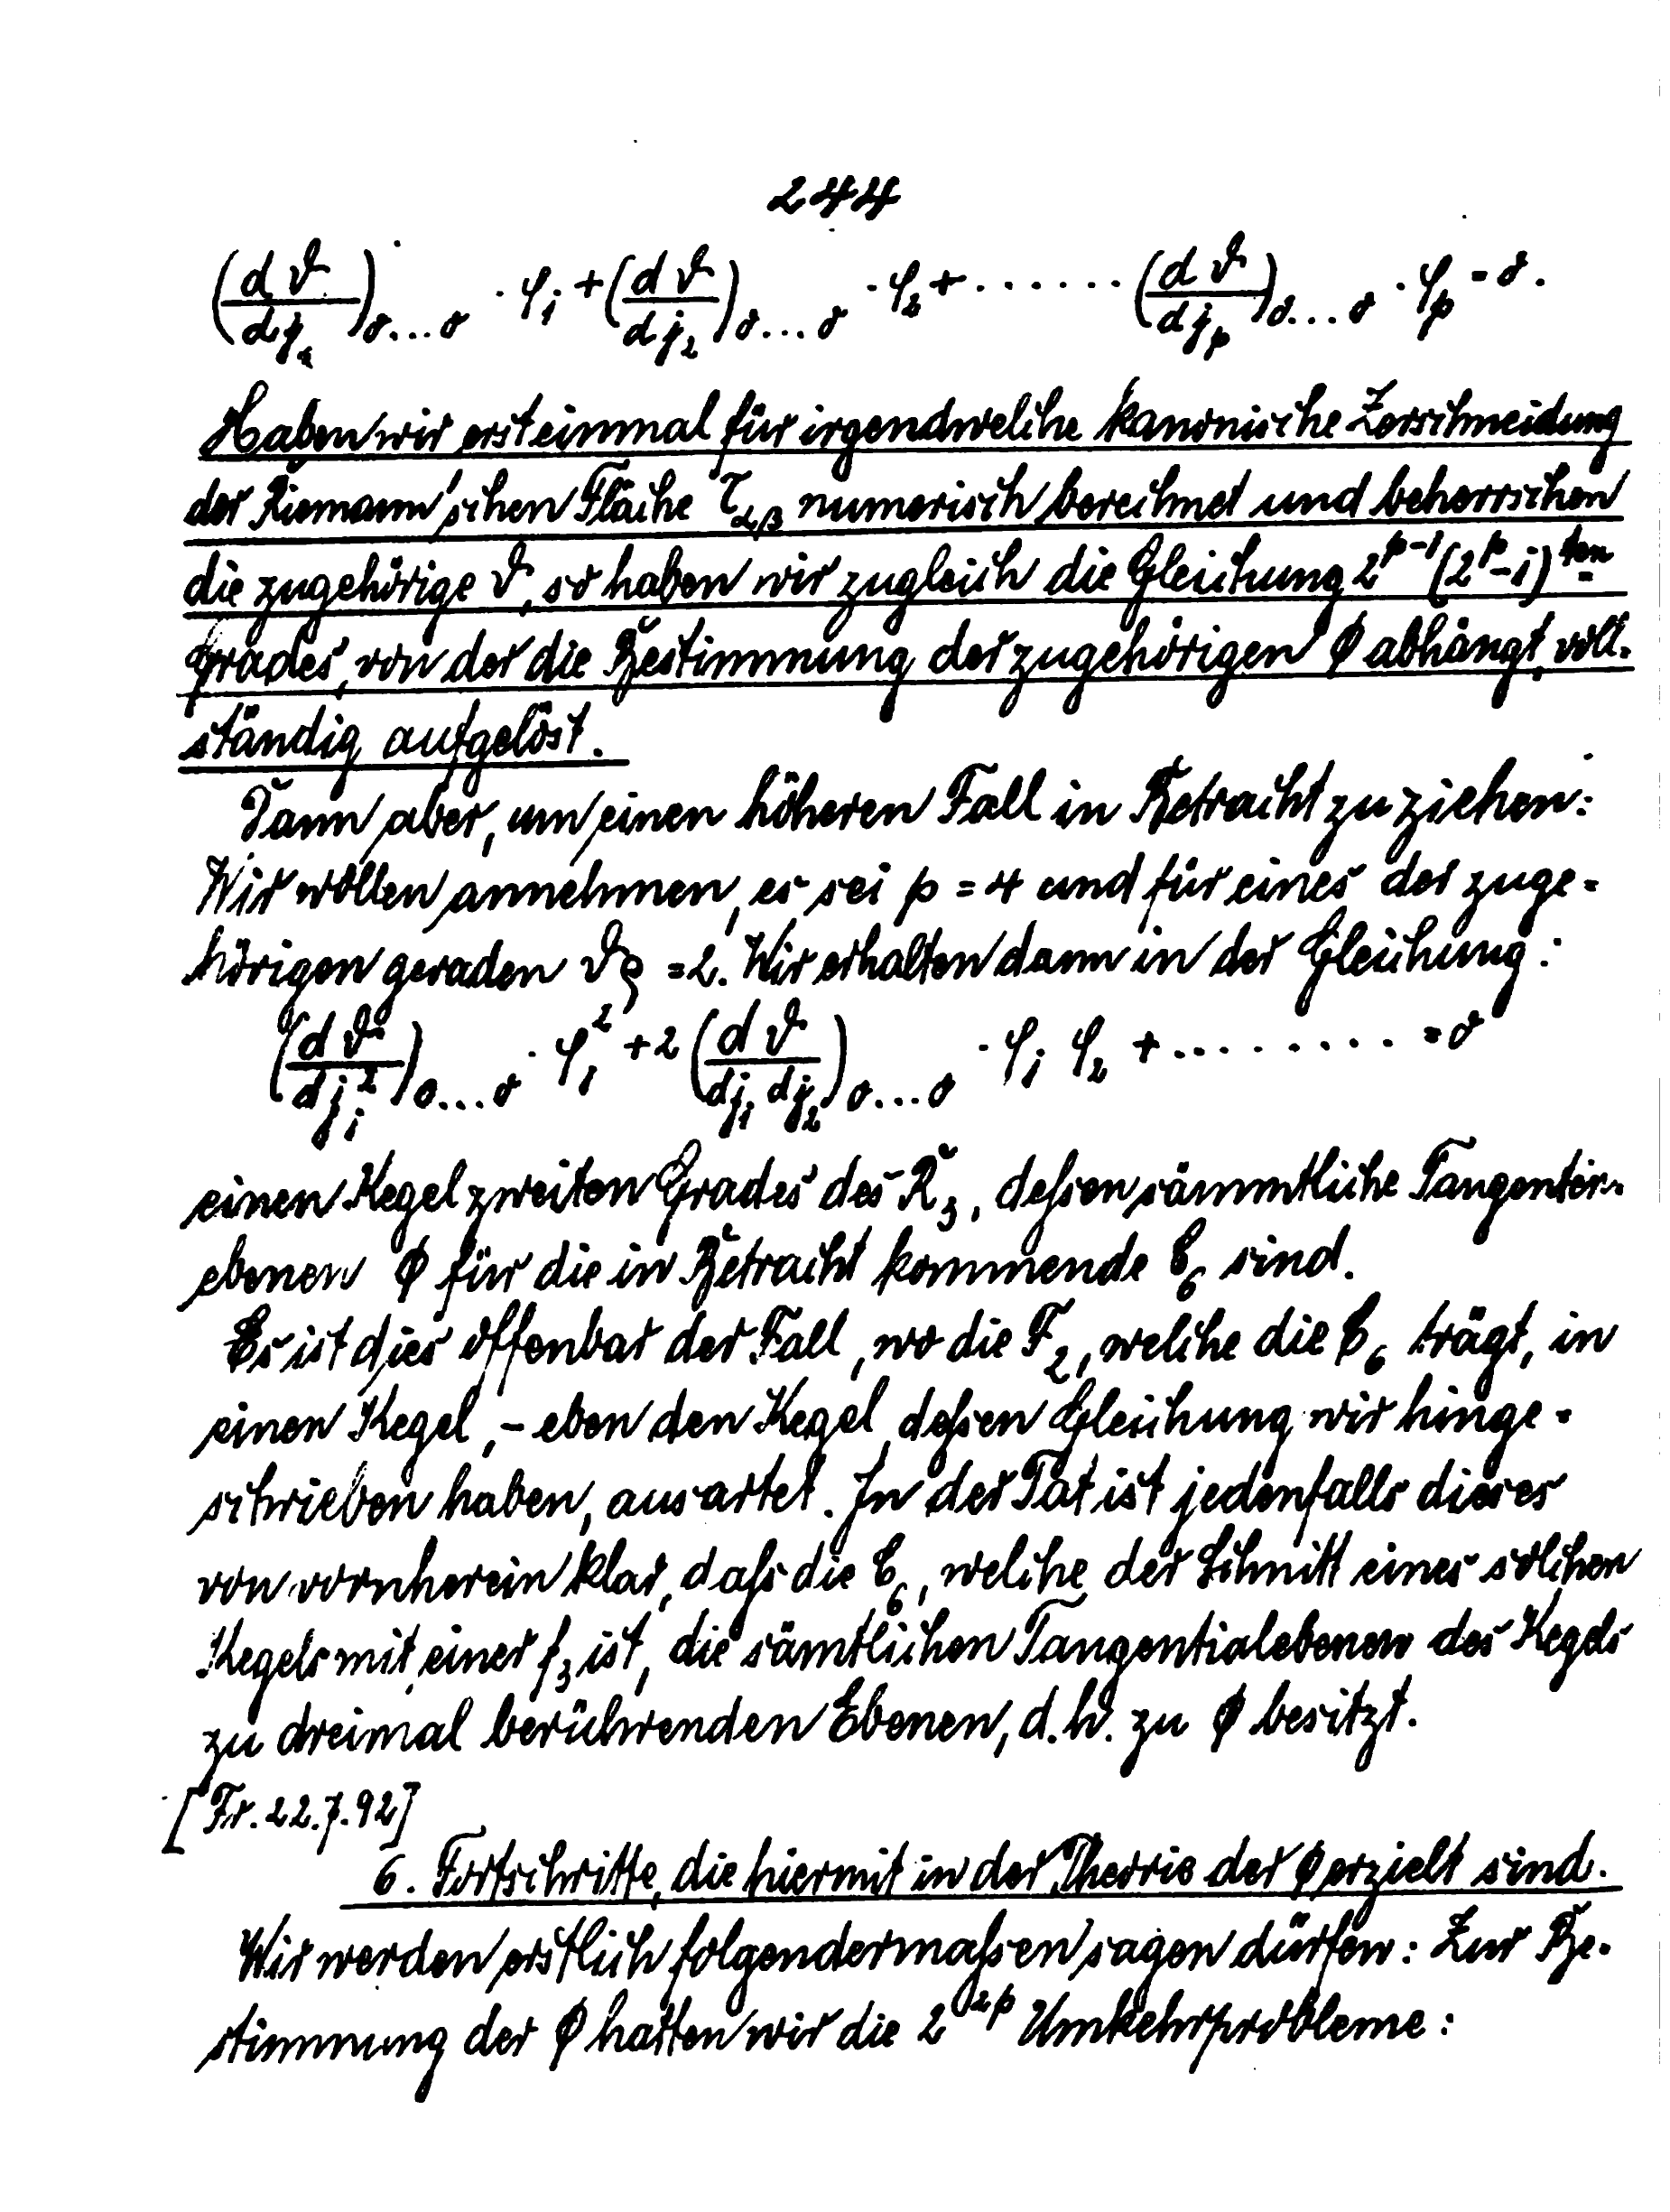 244
(dϑ/dj₁)₀...₀ · φ₁ + (dϑ/dj₂)₀...₀ · φ₂ + ······ (dϑ/djₚ)₀...₀ · φₚ = 0.
Haben wir erst einmal für irgendwelche kanonische Zerschneidung
der Riemann'schen Fläche τ_αβ numerisch berechnet und beherrschen
die zugehörige ϑ, so haben wir zugleich die Gleichung 2^{p-1}(2^p-1)^{ten}
Grades, von der die Bestimmung der zugehörigen Φ abhängt, voll-
ständig aufgelöst.
Dann aber, um einen höheren Fall in Betracht zu ziehen:
Wir wollen annehmen, es sei p = 4 und für eines der zuge-
hörigen geraden ϑ ϱ = 2. Wir erhalten dann in der Gleichung:
(dϑ/dj₁²)₀...₀ · φ₁² + 2 (dϑ/dj₁ dj₂)₀...₀ · φ₁ φ₂ + ········· = 0
einen Kegel zweiten Grades des R₃, dessen sämmtliche Tangenten-
ebenen Φ für die in Betracht kommende C₆ sind.
Es ist dies offenbar der Fall, wo die F₂, welche die C₆ trägt, in
einen Kegel, – eben den Kegel, dessen Gleichung wir hinge-
schrieben haben, ausartet. In der Tat ist jedenfalls dieses
von vornherein klar, daß die C₆, welche der Schnitt eines solchen
Kegels mit einer f₃ ist, die sämtlichen Tangentialebenen des Kegels
zu dreimal berührenden Ebenen, d. h. zu Φ besitzt.
[Fr. 22.7.92]
6. Fortschritte, die hiermit in der Theorie der Φ erzielt sind.
Wir werden erstlich folgendermaßen sagen dürfen: Zur Be-
stimmung der Φ hatten wir die 2^{2p} Umkehrprobleme: